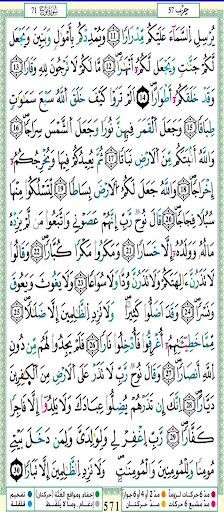 سُورَةُ نُوحٍ 71 حِزْب 57
يُرْسِلِ السَّمَاءَ عَلَيْكُم مِّدْرَارًا ⑪ وَيُمْدِدْكُم بِأَمْوَٰلٍ وَبَنِينَ وَيَجْعَل
لَّكُمْ جَنَّٰتٍ وَيَجْعَل لَّكُمْ أَنْهَٰرًا ⑫ مَّا لَكُمْ لَا تَرْجُونَ لِلَّهِ وَقَارًا ⑬
وَقَدْ خَلَقَكُمْ أَطْوَارًا ⑭ أَلَمْ تَرَوْا كَيْفَ خَلَقَ اللَّهُ سَبْعَ سَمَٰوَٰتٍ
طِبَاقًا ⑮ وَجَعَلَ الْقَمَرَ فِيهِنَّ نُورًا وَجَعَلَ الشَّمْسَ سِرَاجًا ⑯
وَاللَّهُ أَنبَتَكُم مِّنَ الْأَرْضِ نَبَاتًا ⑰ ثُمَّ يُعِيدُكُمْ فِيهَا وَيُخْرِجُكُمْ
إِخْرَاجًا ⑱ وَاللَّهُ جَعَلَ لَكُمُ الْأَرْضَ بِسَاطًا ⑲ لِّتَسْلُكُوا مِنْهَا
سُبُلًا فِجَاجًا ⑳ قَالَ نُوحٌ رَّبِّ إِنَّهُمْ عَصَوْنِي وَاتَّبَعُوا مَن لَّمْ يَزِدْهُ
مَالُهُ وَوَلَدُهُ إِلَّا خَسَارًا ㉑ وَمَكَرُوا مَكْرًا كُبَّارًا ㉒ وَقَالُوا
لَا تَذَرُنَّ ءَالِهَتَكُمْ وَلَا تَذَرُنَّ وَدًّا وَلَا سُوَاعًا وَلَا يَغُوثَ وَيَعُوقَ
وَنَسْرًا ㉓ وَقَدْ أَضَلُّوا كَثِيرًا وَلَا تَزِدِ الظَّٰلِمِينَ إِلَّا ضَلَٰلًا ㉔
مِّمَّا خَطِيٓـَٰٔتِهِمْ أُغْرِقُوا فَأُدْخِلُوا نَارًا فَلَمْ يَجِدُوا لَهُم مِّن دُونِ
اللَّهِ أَنصَارًا ㉕ وَقَالَ نُوحٌ رَّبِّ لَا تَذَرْ عَلَى الْأَرْضِ مِنَ الْكَٰفِرِينَ
دَيَّارًا ㉖ إِنَّكَ إِن تَذَرْهُمْ يُضِلُّوا عِبَادَكَ وَلَا يَلِدُوا إِلَّا فَاجِرًا
كَفَّارًا ㉗ رَّبِّ اغْفِرْ لِي وَلِوَٰلِدَيَّ وَلِمَن دَخَلَ بَيْتِيَ
مُؤْمِنًا وَلِلْمُؤْمِنِينَ وَالْمُؤْمِنَٰتِ وَلَا تَزِدِ الظَّٰلِمِينَ إِلَّا تَبَارًا ㉘
571